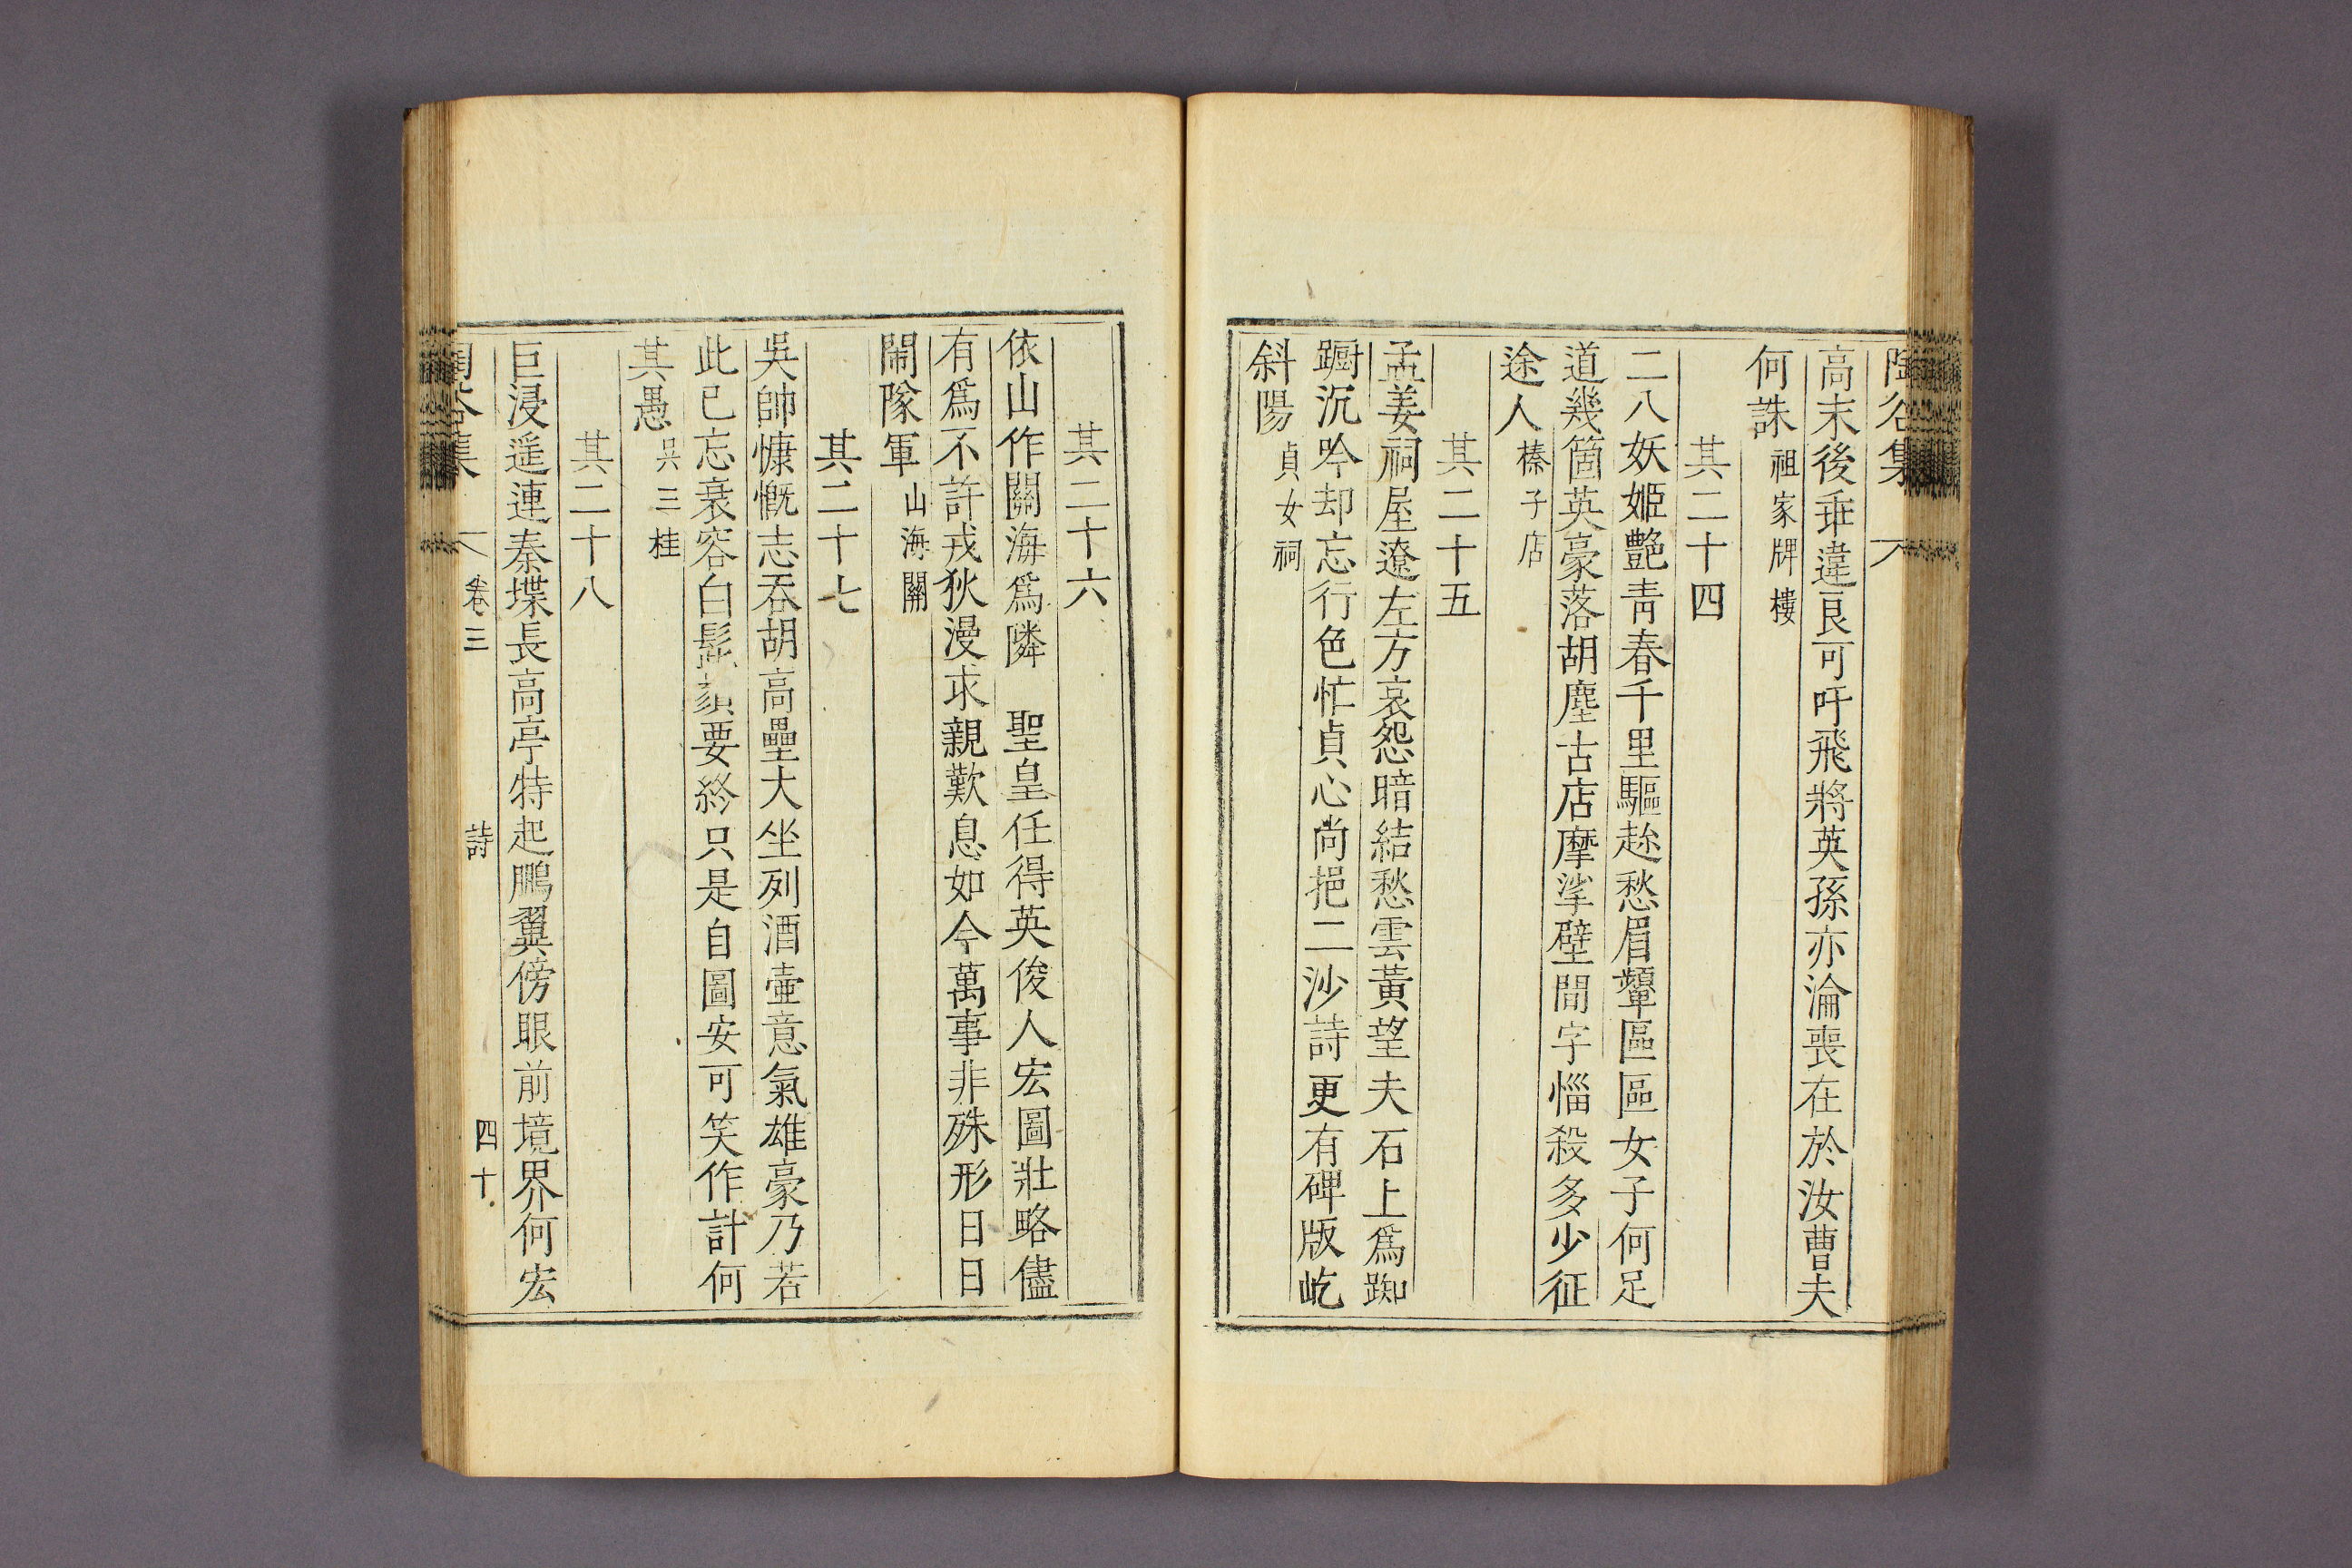 高末後乖違良可吁飛將英孫亦淪喪在於汝曹夫
何誅祖家牌樓
其二十四
二八妖姬艶靑春千里驅趂愁眉顰區區女子何足
道幾箇英豪落胡塵古店摩挲壁間字惱殺多少征
途人榛子店
其二十五
孟姜祠屋遼左方哀怨暗結愁雲黃望夫石上爲踟
躕沉吟却忘行色忙貞心尙挹二沙詩更有碑版屹
斜陽貞女祠
其二十六
依山作關海爲隣 聖皇任得英俊人宏圖壯略儘
有爲不許戎狄漫求親歎息如今萬事非殊形日日
鬧隊軍山海關
其二十七
吳帥慷慨志吞胡高壘大坐列酒壺意氣雄豪乃若
此已忘衰容白髭鬚要終只是自圖安可笑作計何
其愚吳三桂
其二十八
巨浸遥連秦堞長高亭特起鵬翼傍眼前境界何宏
集 卷三 詩 四十